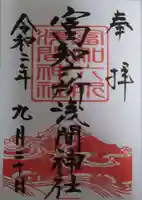 奉拝
富知六所浅間神社
令和二年九月二十日